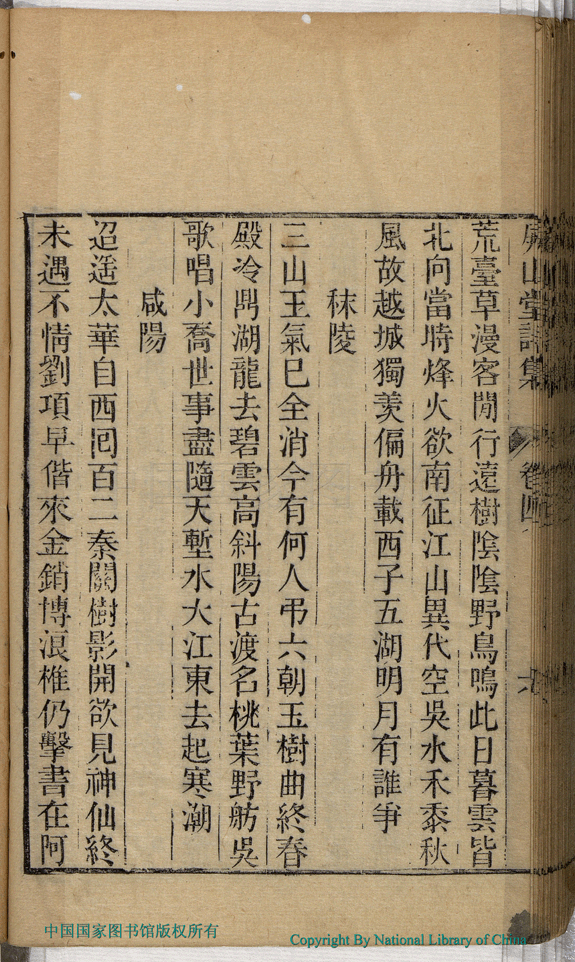 屏山堂詩集 卷四 六
荒臺草漫客閒行遠樹陰陰野鳥鳴此日暮雲皆
北向當時烽火欲南征江山異代空吳水禾黍秋
風故越城獨羡偏舟載西子五湖明月有誰爭
秣陵
三山王氣巳全消今有何人弔六朝玉樹曲終春
殿冷鼎湖龍去碧雲高斜陽古渡名桃葉野舫吳
歌唱小喬世事盡隨天塹水大江東去起寒潮
咸陽
迢遥太華自西囘百二秦關樹影開欲見神仙終
未遇不情劉項早偕來金銷博浪椎仍擊書在阿
中国国家图书馆版权所有
Copyright By National Library of China